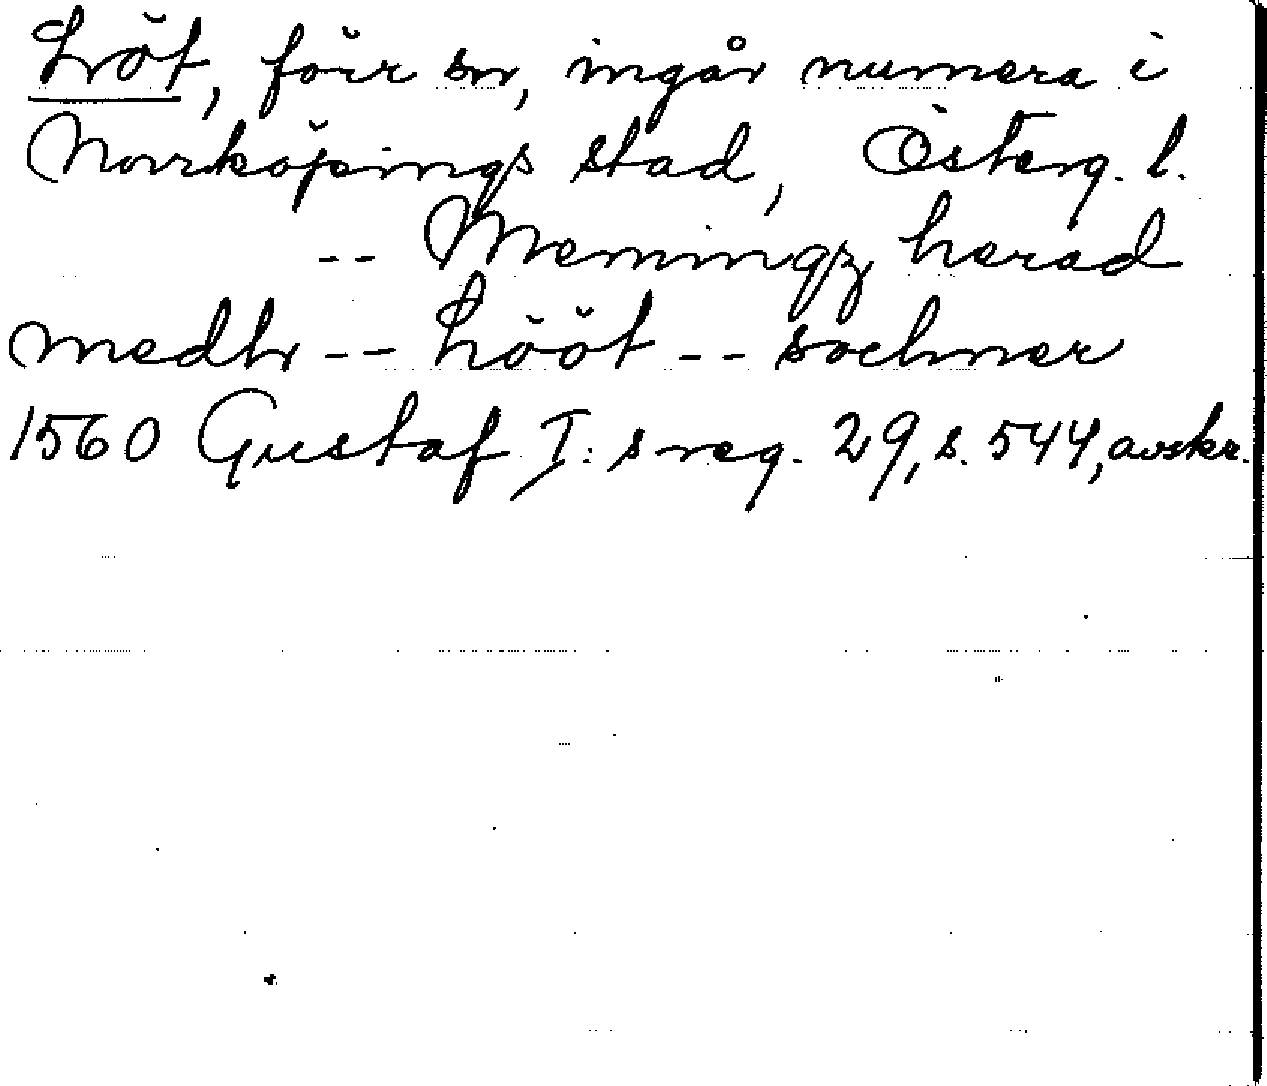 Löt, förr sn, ingår numera i
Norrköpings stad, Österg. l.
-- Memingz herad
medh -- Lööt -- sochner
1560 Gustaf I:s reg. 29, s. 544, avskr.